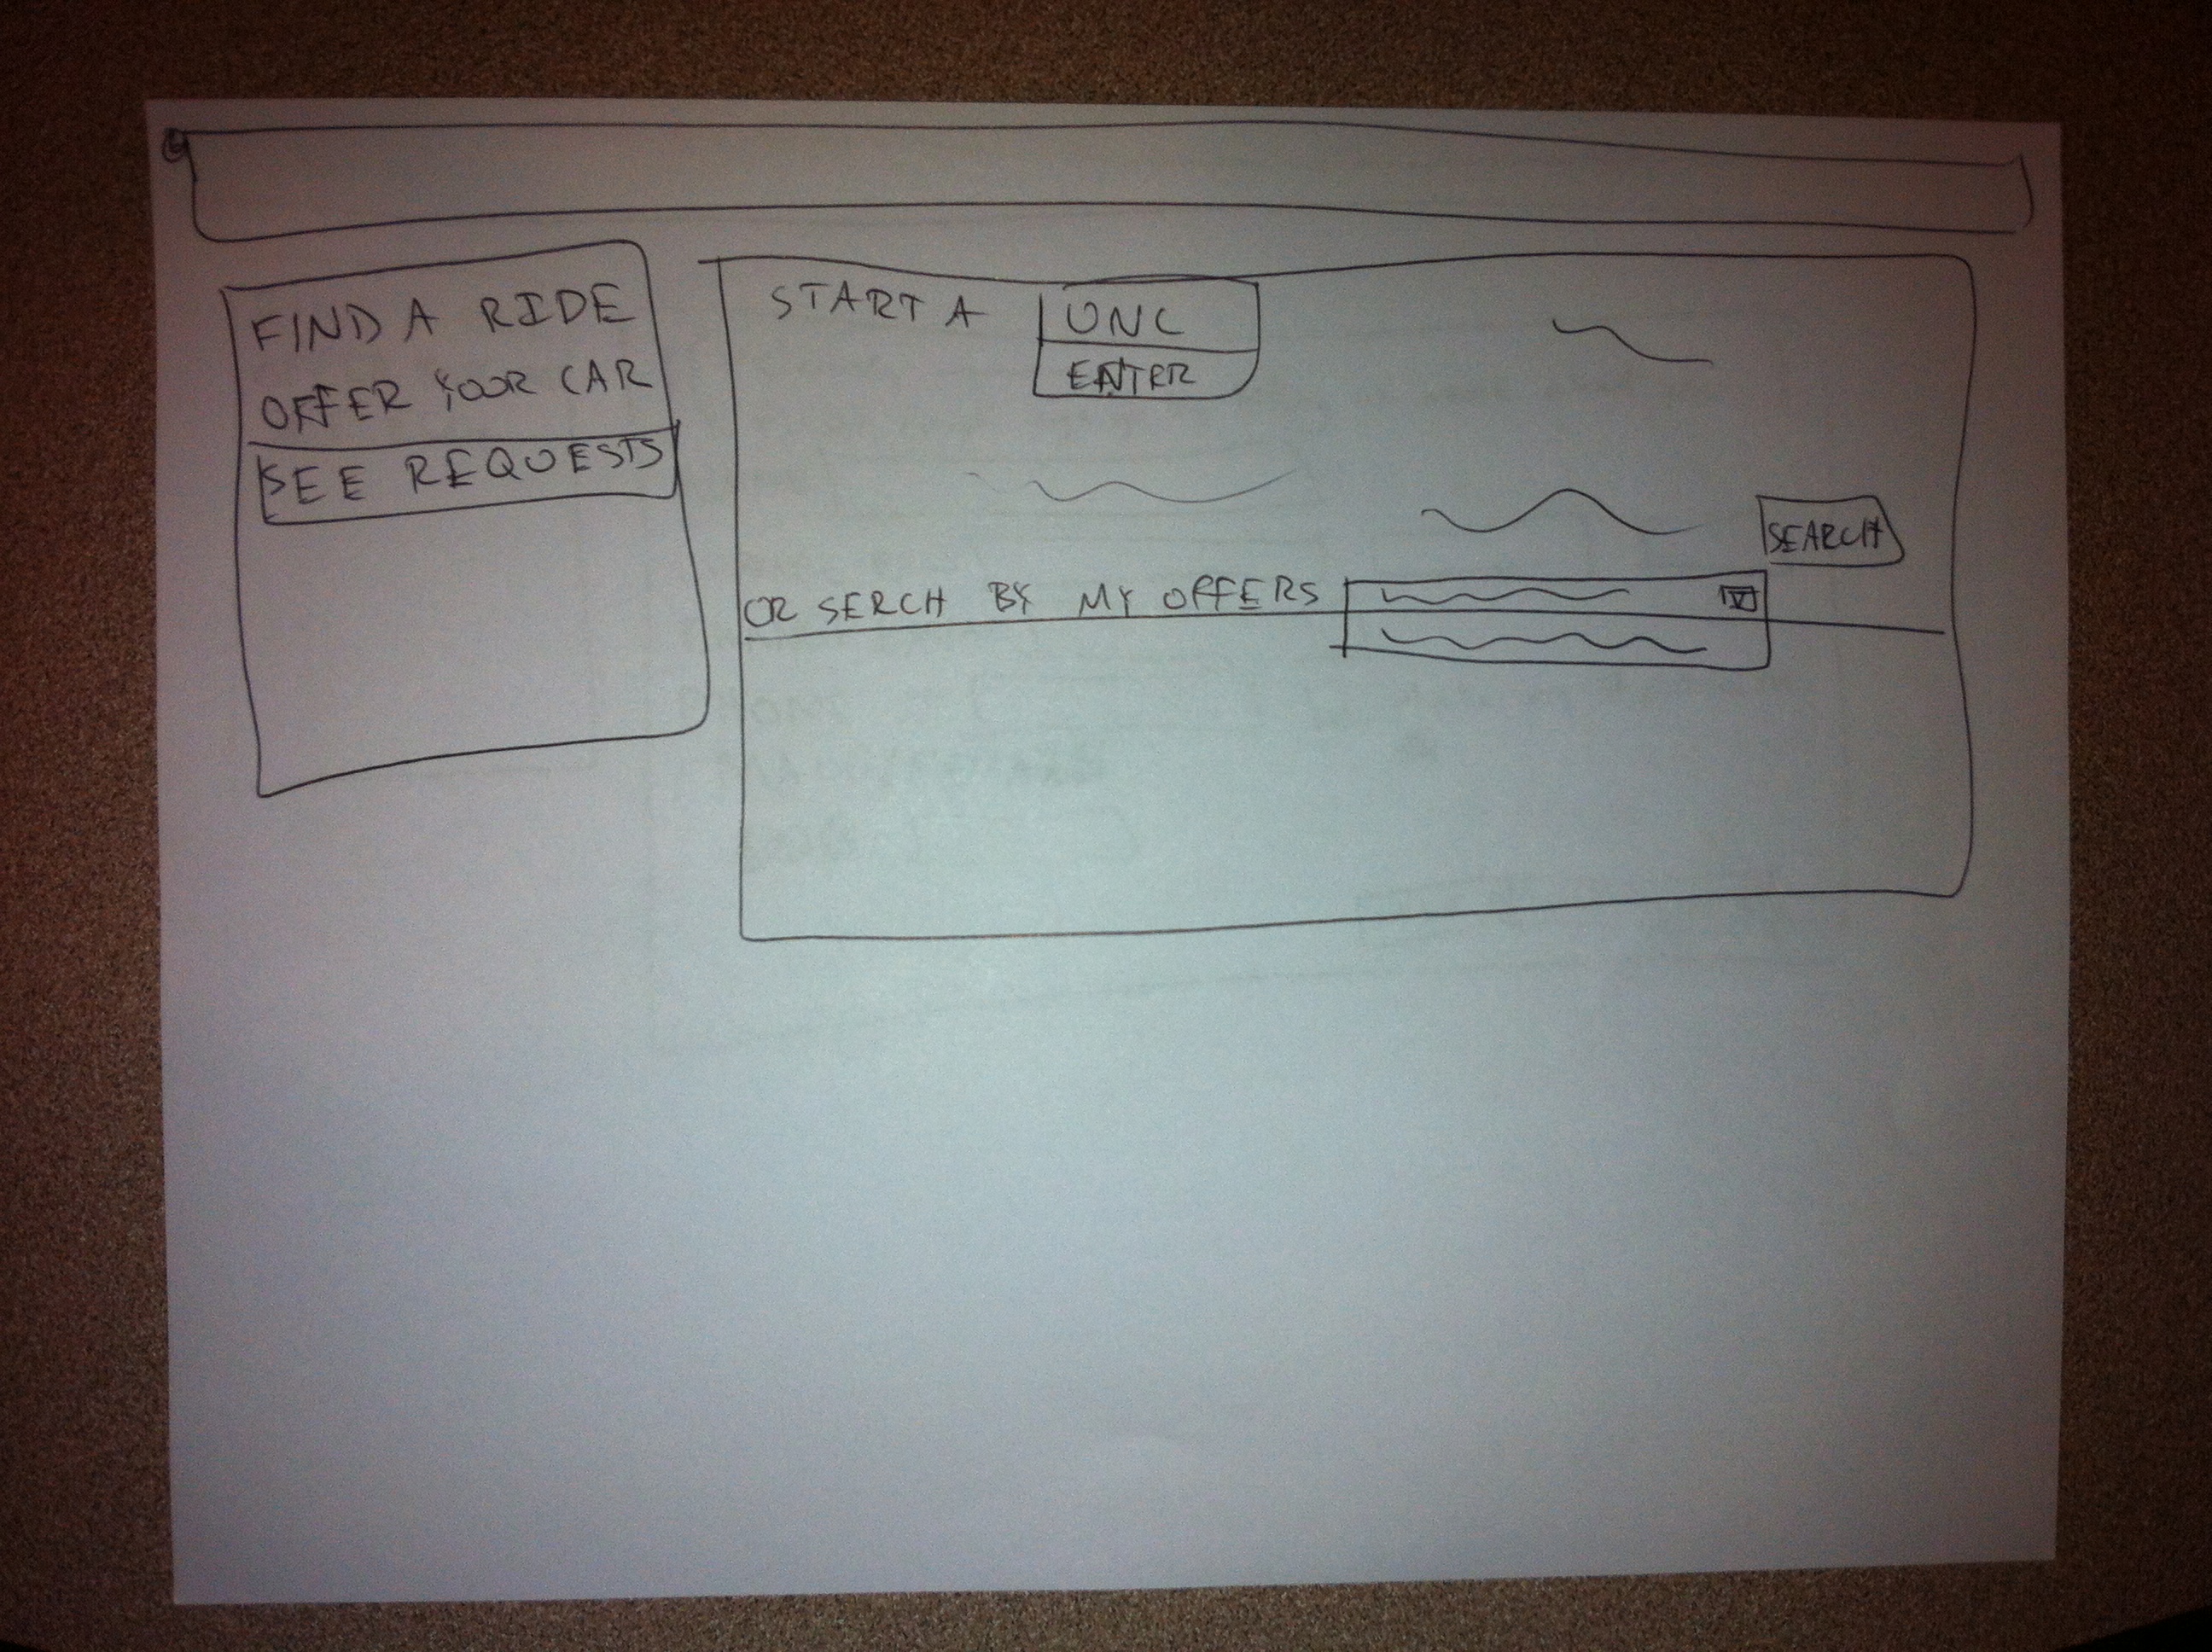 FIND A RIDE
OFFER YOUR CAR
SEE REQUESTS
START A
UNC
ENTER
SEARCH
OR SERCH BY MY OFFERS